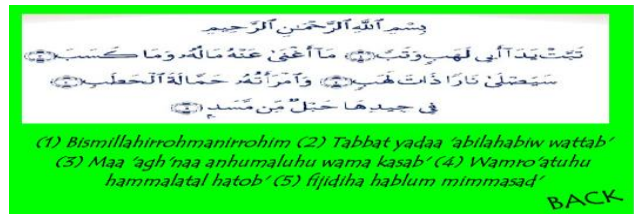 بِسْمِ اللَّهِ الرَّحْمَٰنِ الرَّحِيمِ
تَبَّتْ يَدَا أَبِي لَهَبٍ وَتَبَّ ﴿١﴾ مَا أَغْنَىٰ عَنْهُ مَالُهُ وَمَا كَسَبَ ﴿٢﴾
سَيَصْلَىٰ نَارًا ذَاتَ لَهَبٍ ﴿٣﴾ وَامْرَأَتُهُ حَمَّالَةَ الْحَطَبِ ﴿٤﴾
فِي جِيدِهَا حَبْلٌ مِّن مَّسَدٍ ﴿٥﴾
(1) Bismillahirrohmanirrohim (2) Tabbat yadaa 'abilahabiw wattab'
(3) Maa 'agh'naa anhumaluhu wama kasab' (4) Wamro'atuhu
hammalatal hatob' (5) fijidiha hablum mimmasad'
BACK